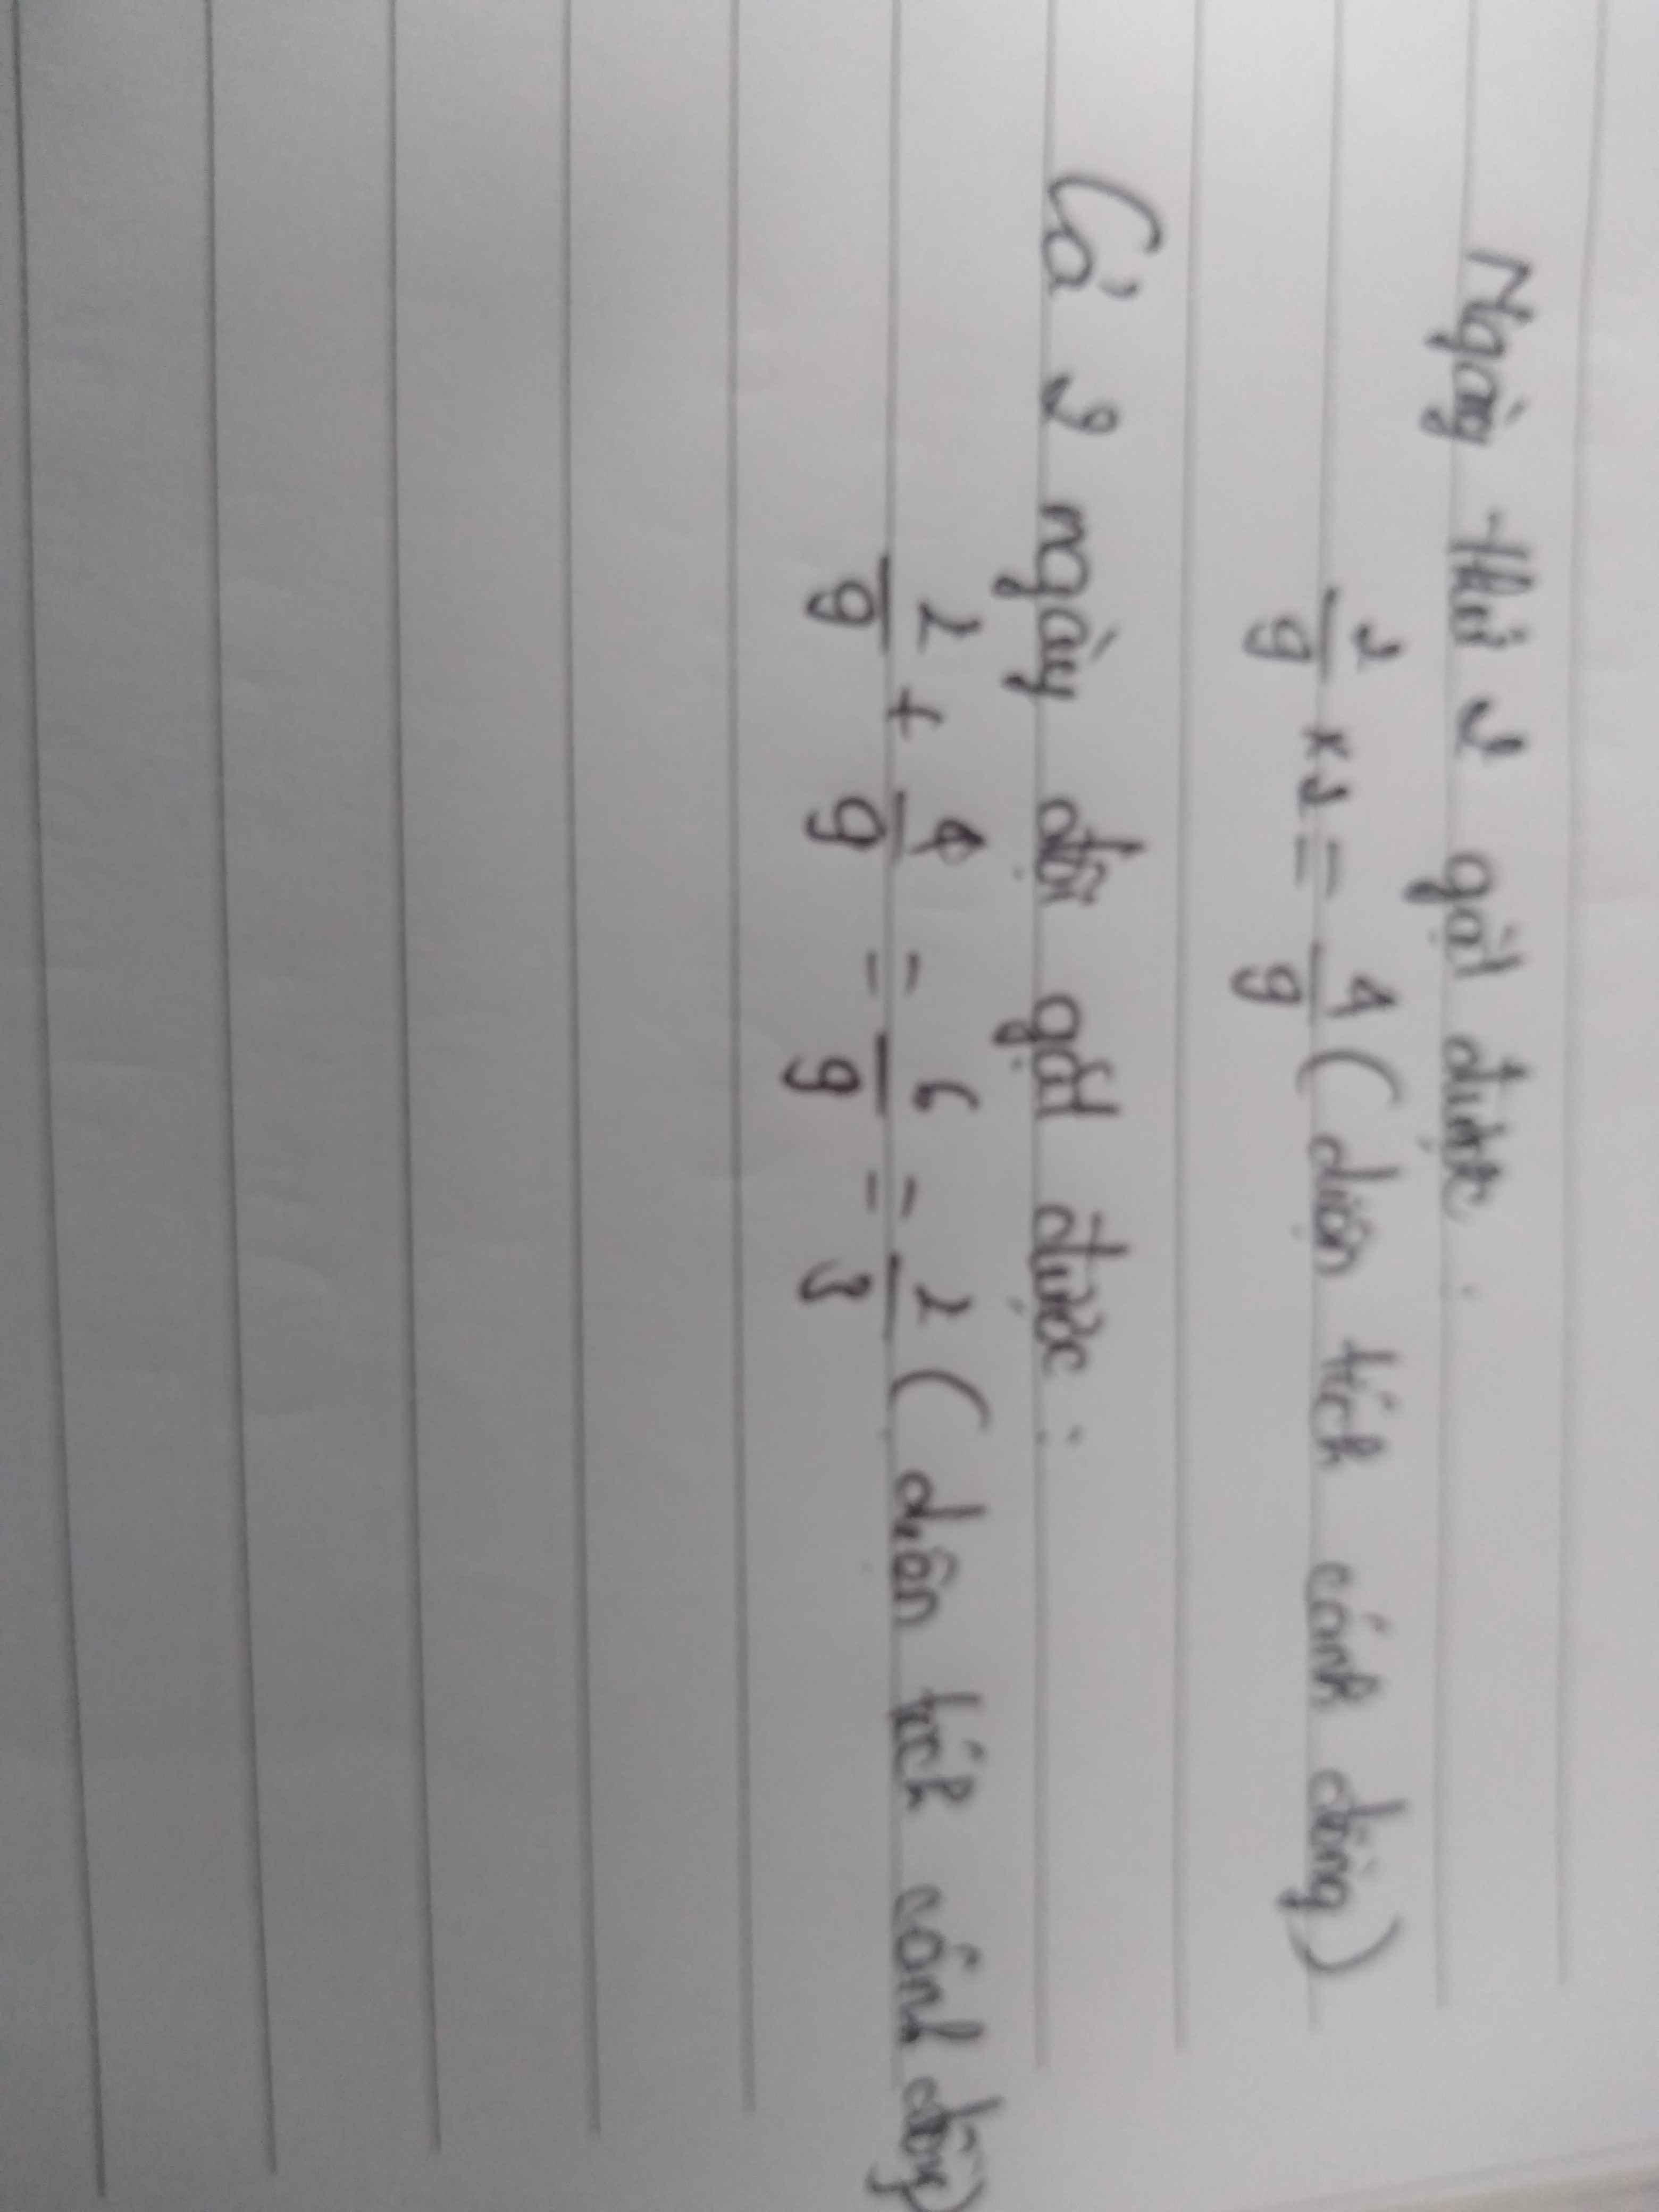 Ngày thứ 2 gặt được :
2/9 x 2 = 4/9 ( diện tích cánh đồng)
Cả 2 ngày đội gặt được :
2/9 + 4/9 = 6/9 = 2/3 ( diện tích cánh đồng)